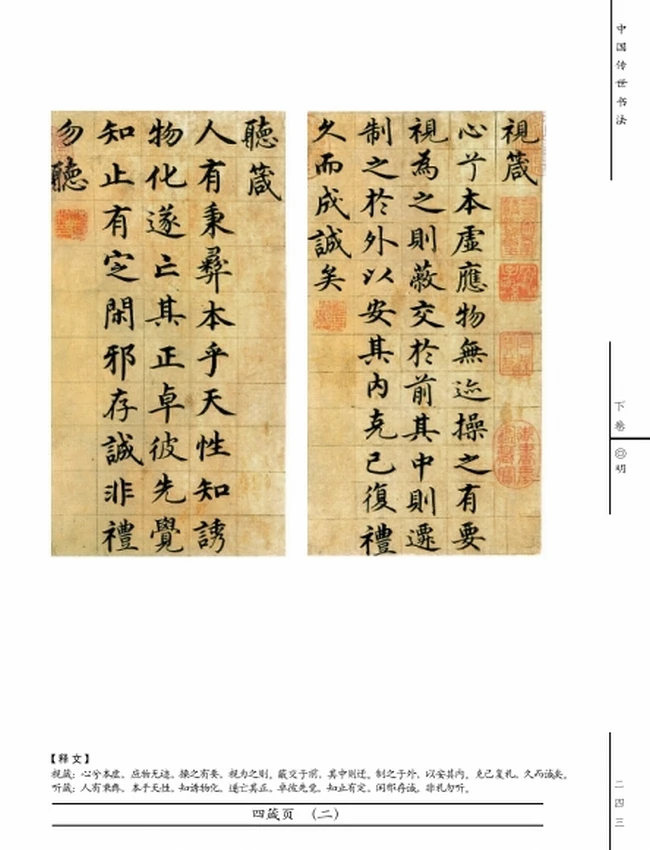 中国传世书法
視箴
心兮本虛應物無迹操之有要
視為之則蔽交於前其中則遷
制之於外以安其内克己復禮
久而成誠矣
聽箴
人有秉彝本乎天性知誘
物化遂亡其正卓彼先覺
知止有定閑邪存誠非禮
勿聽
下卷
明
【释文】
视箴：心兮本虚，应物无迹。操之有要，视为之则。蔽交于前，其中则迁。制之于外，以安其内。克己复礼，久而诚矣。
听箴：人有秉彝，本乎天性。知诱物化，遂亡其正。卓彼先觉，知止有定。闲邪存诚，非礼勿听。
四箴页 （二）
二四三